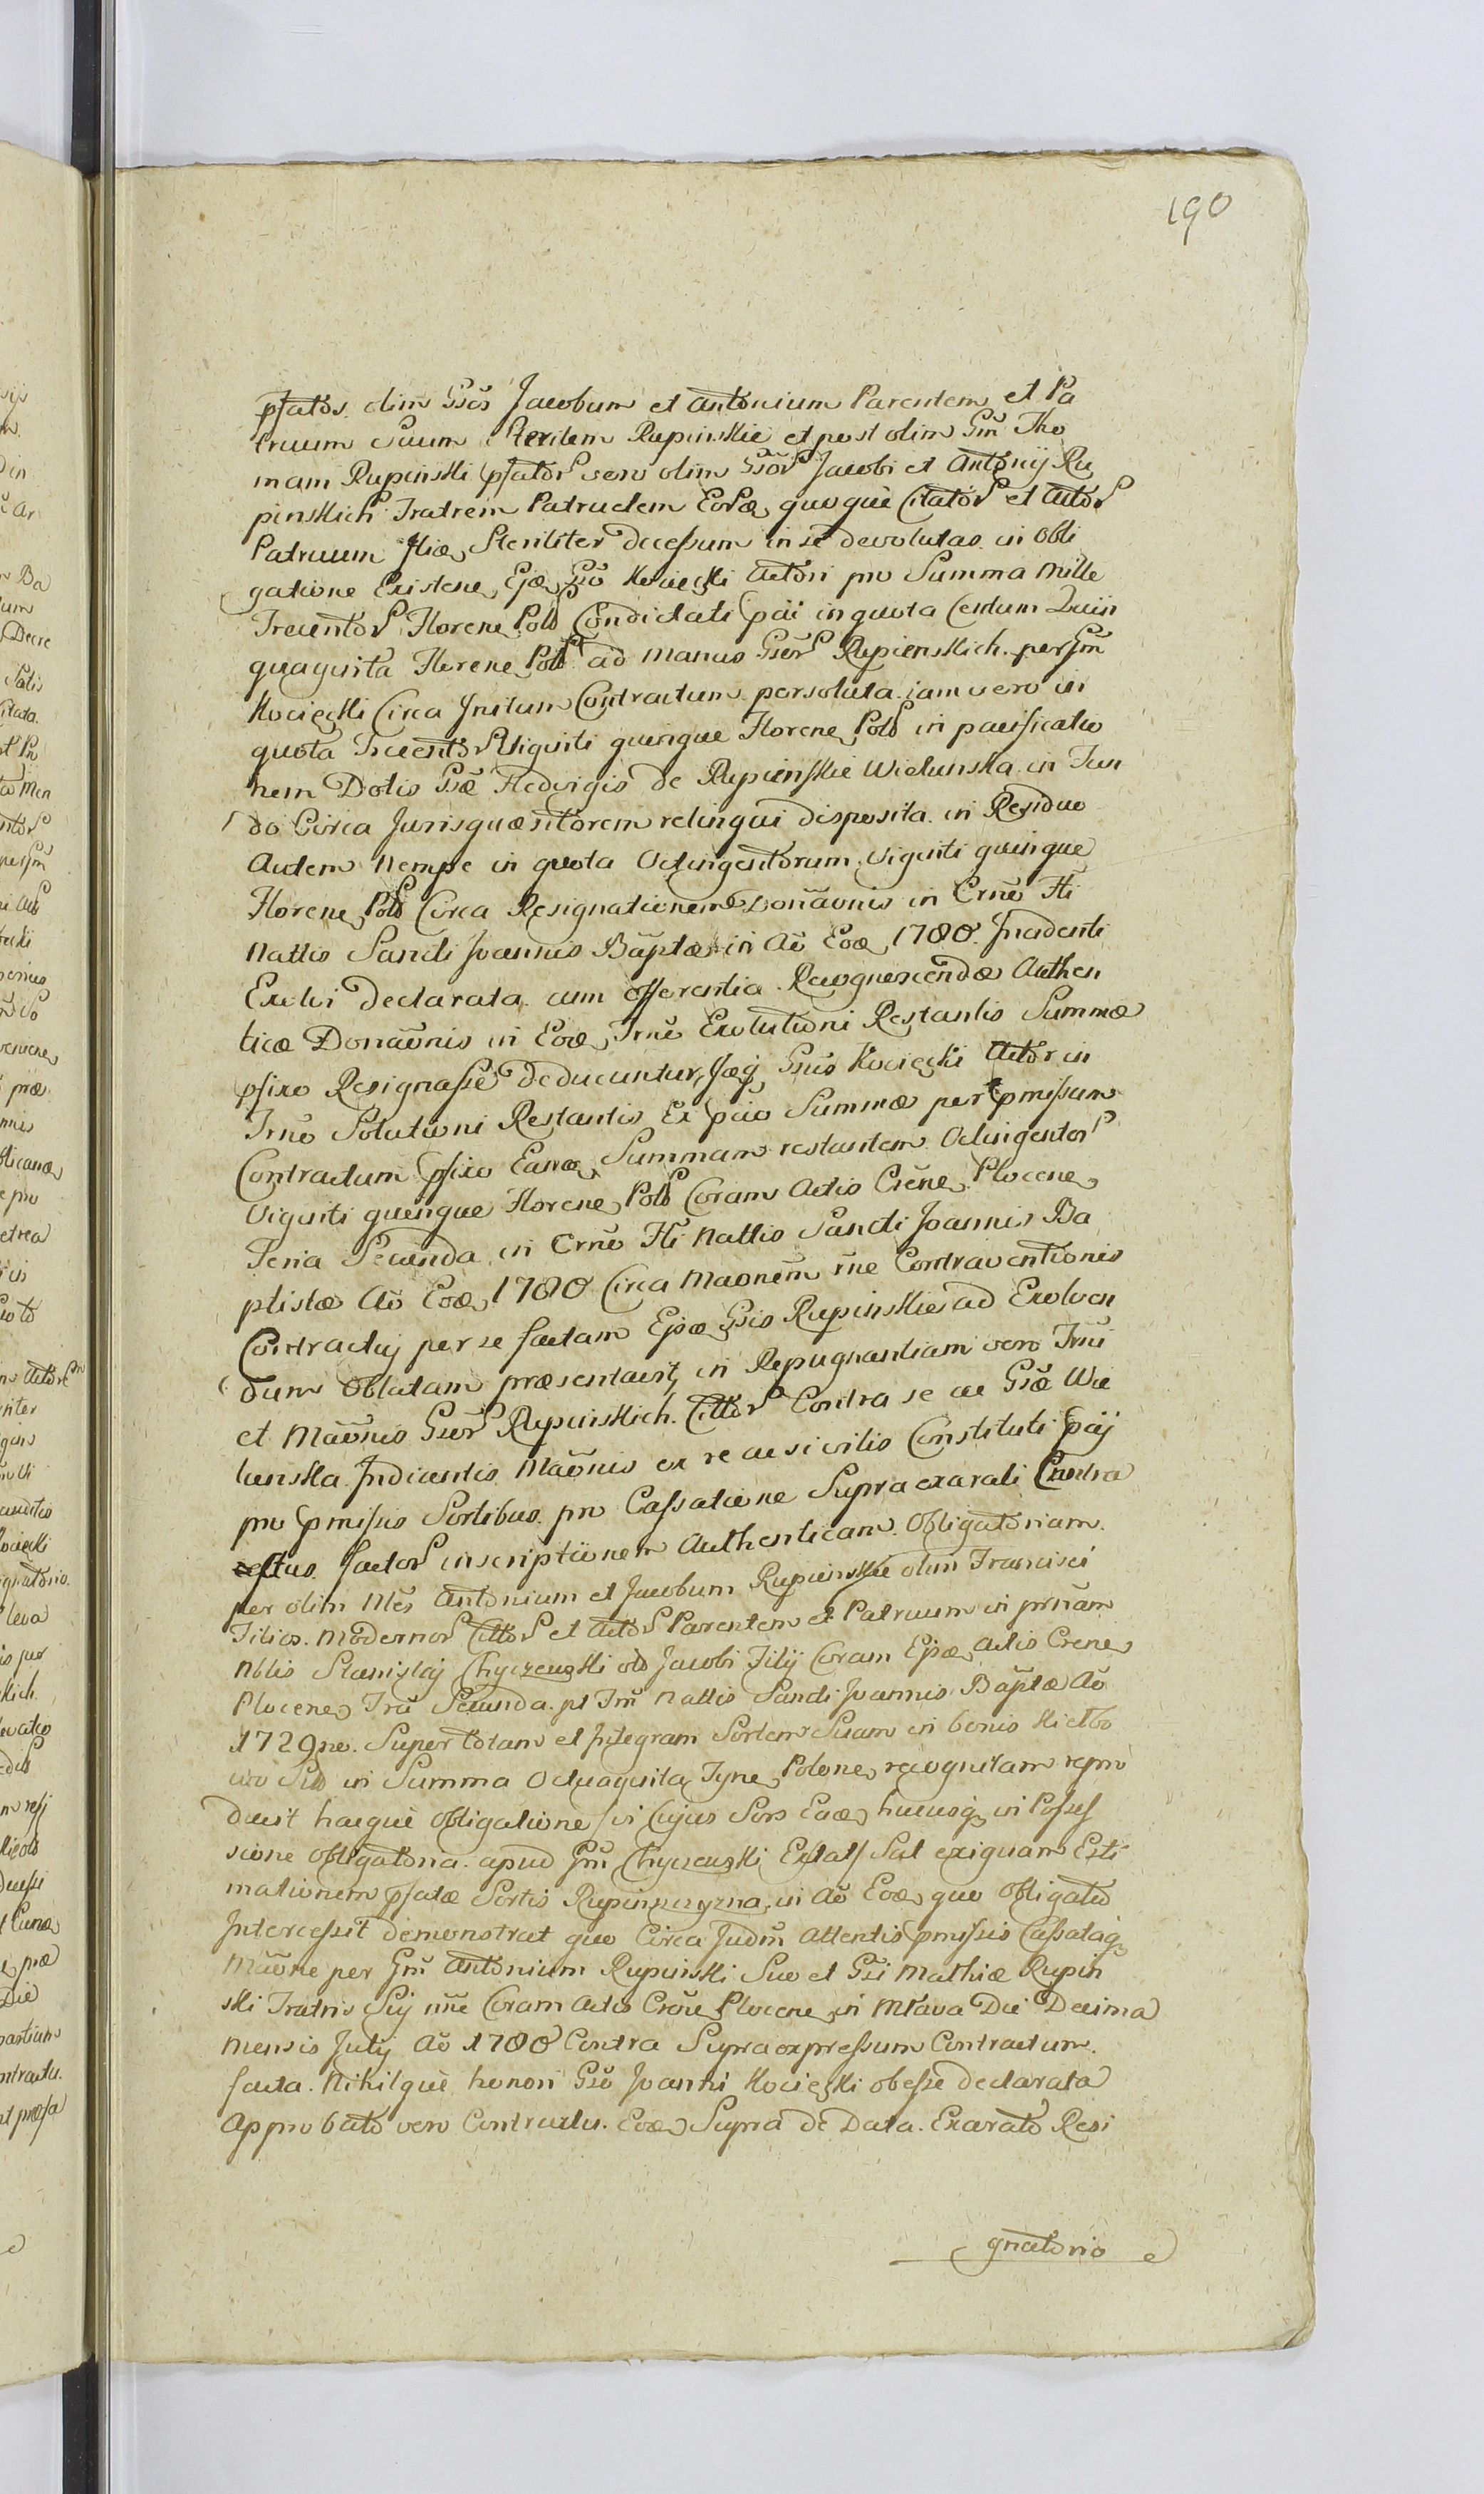 190
pfatos olim Gsos Jacobum et Antonium Parentem et Pa
truum Suum Sterilem Rupinskie et post olim Gm Tho
mam Rupinski pfator vero olim Gsor Jacobi et Antonij Ru
pinskich Fratrem Patruelem quoque Citator et Actor
Patruum Steriliter decessum in se devolutas in obli
gatione Gso Kocięcki Actori pro Summa Mille
Trecentor Florene Pold Condictati pcii in quota Centum Quin
quaginta Florene Pold ad manus Gsor Rupienskich per Gm
Kocięcki Circa Initum Contractum persoluta iam vero in
quota Trecentor Viginti quinque Florene Pold in pacificatio
nem Dotis Gsæ Hedvigis de Rupienskie Wielunska in Fun
do Circa Jurisquæsitorem relinqui disposita in Residuo
Autem Nempe in quota Octingentorum Viginti quinque
Florene Pold Circa Resignationem Donaonis in Crno Fti
Nattis Sancti Joannis Baptæ in Ao Eoæ 1780 Incidenti
Exolvi declarata cum offerentia Recognoscendæ Authen
ticæ Donaonis in Eoæ Trno Exolutioni Restantis Summæ
pfixo Resignasse deducuntur, Gsus Kocięcki Actor in
Trno Solutioni Restantis Ex pcio Summæ per pmissum
Contractum pfixo Summam restantem Octingentor
Viginti quinque Florene Pold Coram Actis Crene Plocene
Feria Secunda in Crno Fti Nattis Sancti Joannis Ba
ptistæ Ao Eoæ 1780 Circa Maonem rne Contraventionis
Contractuj per se factam Gsis Rupinskie ad Exolven
dum Oblatam præsentavit, in Repugnantiam vero Trni
et Maonis Gsor Rupinskich Cittor Contra se ac Gsæ Wie
lunska Indicantis Maonis ex re ac si vilis Constituti pcij
pro pmissis Sortibus pro Cassatione Supra exarati Contra
ctus factor inscriptionem Authenticam Obligatoriam
per olim Mes Antonium et Jacobum Rupienskie olim Francisci
Filios Modernor Cittor et Actor Parentem et Patruum in prnam
Nblis Stanislaj Chyczewski old Jacobi Filij Coram Actis Crene
Plocene Fra Secunda pt Fm Nattis Sancti Joannis Baptæ Ao
1729ne Super totam et Integram Sortem Suam in bonis
in Summa Octuaginta Tyne Polone recognitam repro
ducit hacque obligatione in Cujus Sors hucusq in Posses
sione obligatoria apud Gm Chyczewski Extat Sat exiguam Esti
mationem pfatæ Sortis Rupinszczyzna in Ao Eoæ quo Obligatio
Intercessit demonstrat quo Circa Judm Attentis pmissis Cassataq
Maone per Gm Antonium Rupinski Suo et Gsi Mathiæ Rupin
ski Fratris Sij nne Coram Actis Crene Plocene in Mława Die Decima
Mensis July Ao 1780 Contra Supraexpressum Contractum
facta Nihilque honori Gso Joanni Kocięcki obesse declarata
Approbato vero Contractu Supra de Data Exarato Resi
gnatorio